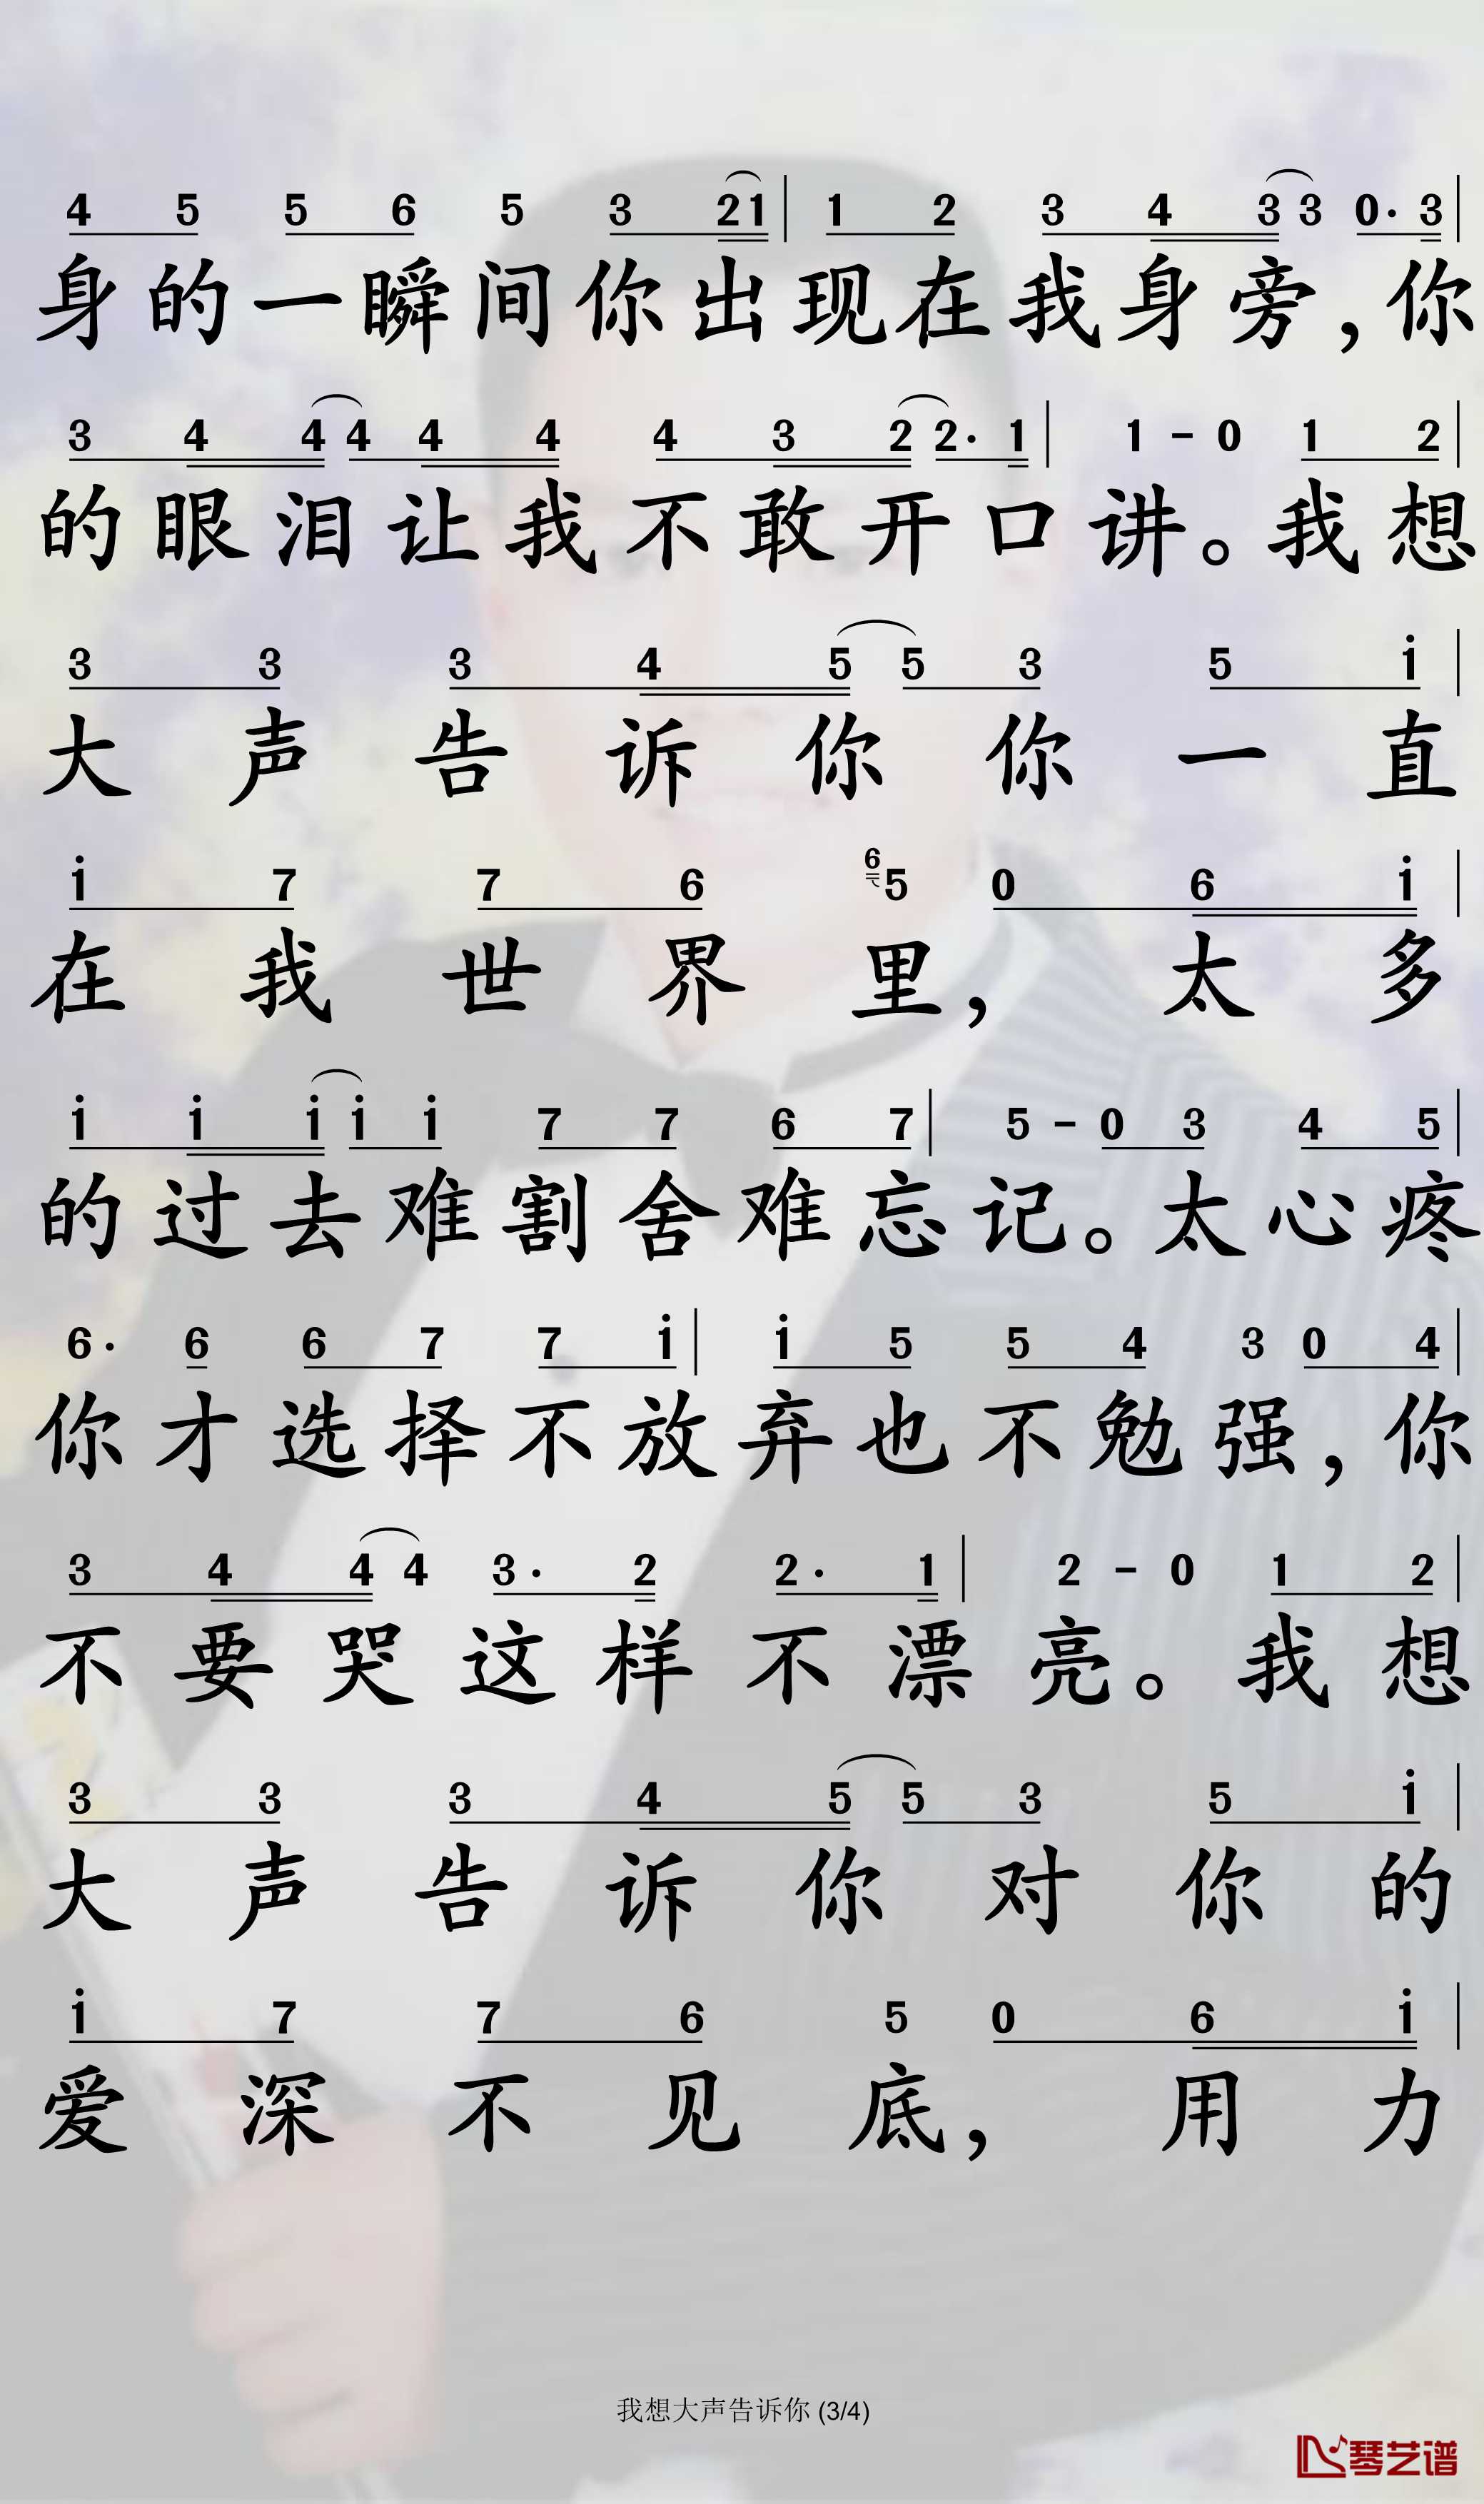 4 5 5 6 5 3 21 | 1 2 3 4 3 3 0· 3 |
身的一瞬间你出现在我身旁，你
3 4 4 4 4 4 4 3 2 2· 1 | 1 - 0 1 2 |
的眼泪让我不敢开口讲。我想
3 3 3 4 5 5 3 5 i |
大声告诉你你一直
i 7 7 6 6 5 0 6 i |
在我世界里，太多
i i i i i 7 7 6 7 | 5 - 0 3 4 5 |
的过去难割舍难忘记。太心疼
6· 6 6 7 7 i | i 5 5 4 3 0 4 |
你才选择不放弃也不勉强，你
3 4 4 4 3· 2 2· 1 | 2 - 0 1 2 |
不要哭这样不漂亮。我想
3 3 3 4 5 5 3 5 i |
大声告诉你对你的
i 7 7 6 5 0 6 i |
爱深不见底，用力
我想大声告诉你 (3/4)
琴艺谱